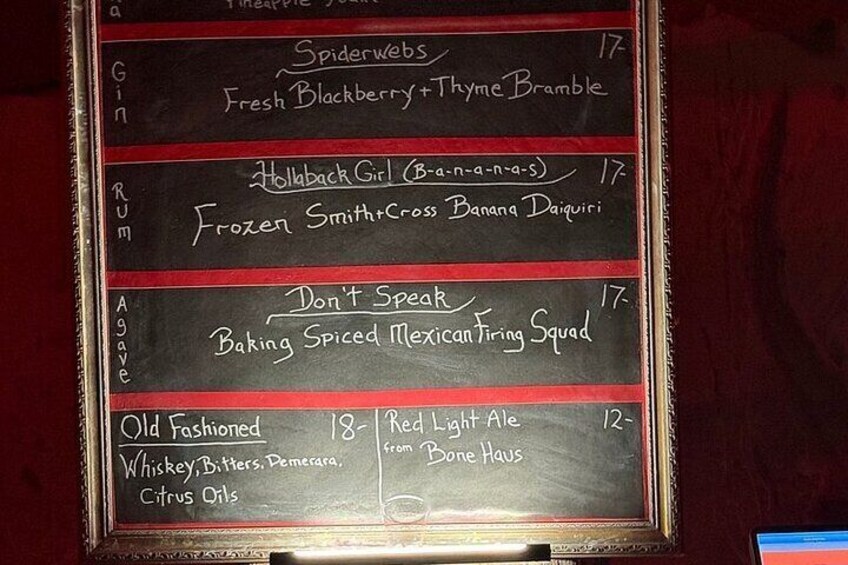 Spiderwebs 17-
Gin
Fresh Blackberry + Thyme Bramble
Hollaback Girl (B-a-n-a-n-a-s) 17-
Rum
Frozen Smith + Cross Banana Daiquiri
Don't Speak 17-
Agave
Baking Spiced Mexican Firing Squad
Old Fashioned 18-
Whiskey, Bitters, Demerara,
Citrus Oils
Red Light Ale 12-
from Bone Haus